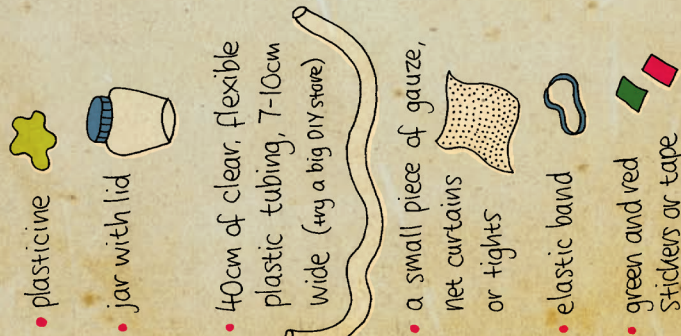 • plasticine
• jar with lid
• 40cm of clear, flexible
plastic tubing, 7-10cm
wide (try a big DIY store)
• a small piece of gauze,
net curtains
or tights
• elastic band
• green and red
stickers or tape